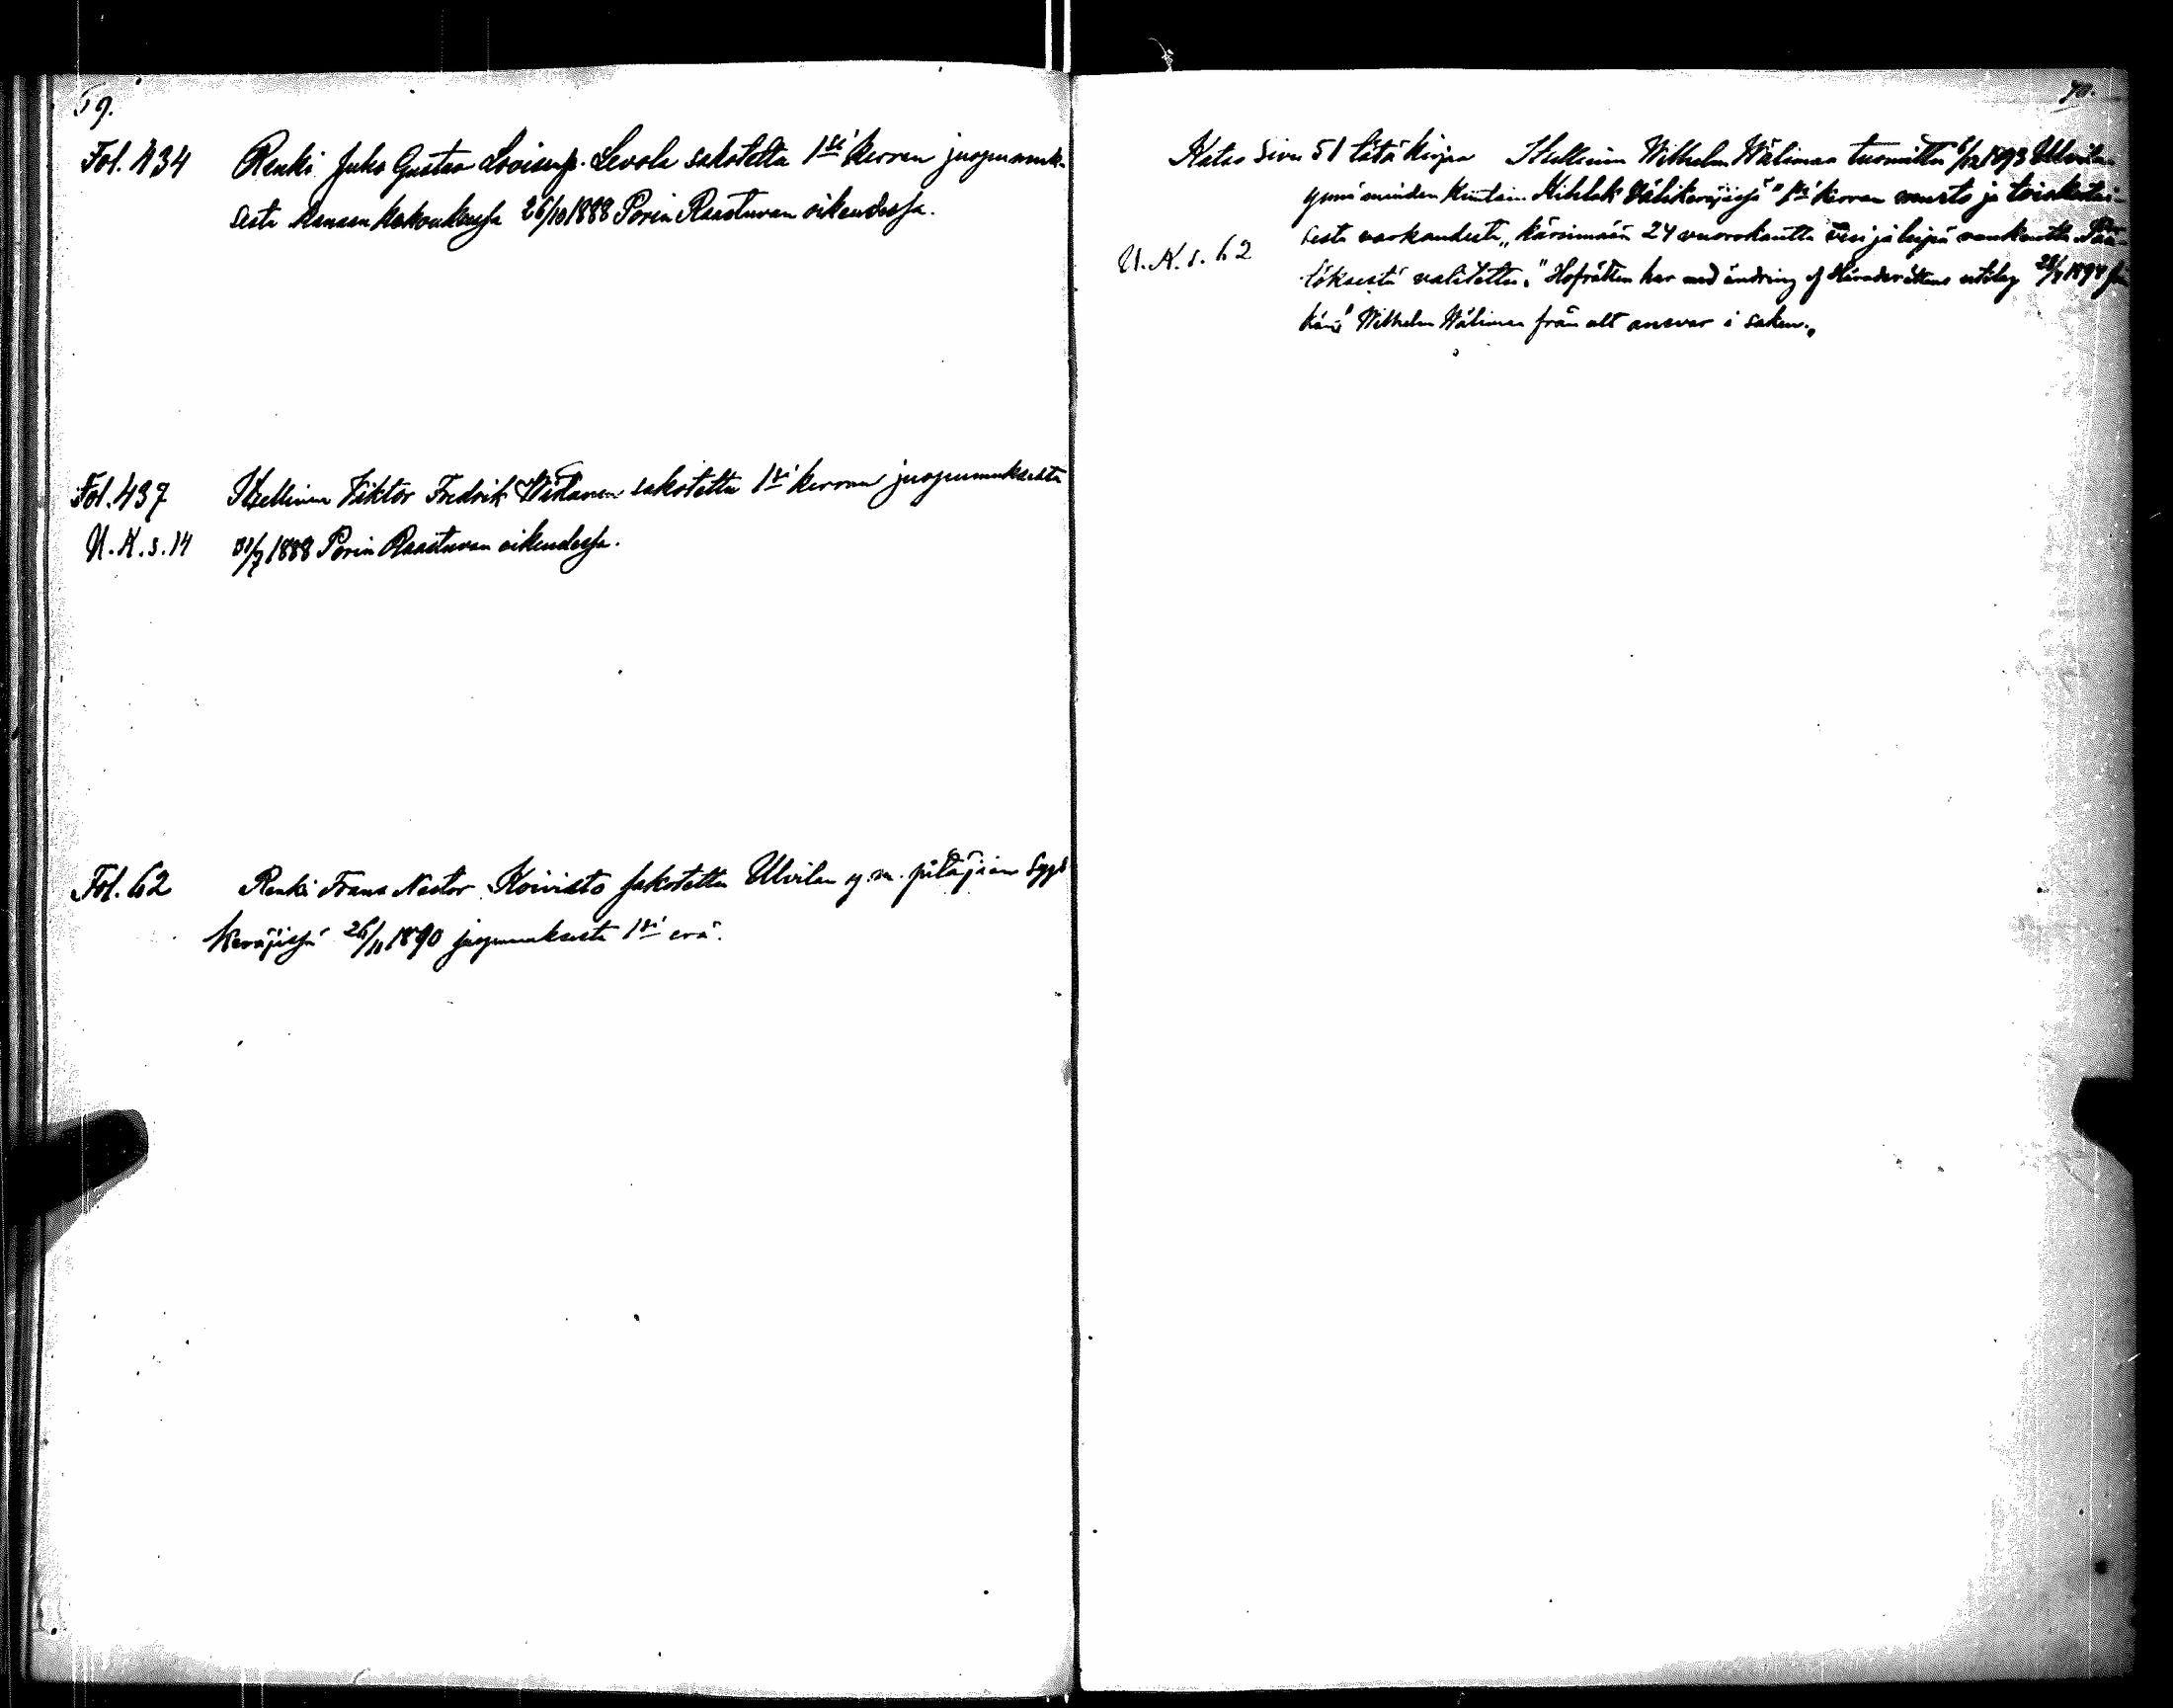 69.
Fol. 434 Renki Juho Gustaa Lovisenp. Levola sakotettu 1si kerran juopumuk-
sesta kansan kokouksessa 26/10 1888 Porin Raastuvan oikeudessa.
Fol. 437 Itsellinen Viktor Fredrik sakotettu 1si kerran juopumuksesta
U.K.s. 14 31/7 1888 Porin Raastuvan oikeudessa.
Fol. 62 Renki Frans Nestor Koivisto sakotettu Ulvilan y.m. pitäjäin Syys
Keräjissä 26/11 1890 juopumuksesta 1si erä.
70.
Katso Sivu 51 tätä kirjaa Itsellinen Wilhelm Wälimaa tuomittu 6/12 1893 Ulvilan
ynnä muiden Kihlak Välikeräjissä "1si kerran murto ja
sesta varkaudesta" kärsimään 24 vuorokautta vesi ja leipä vankeutta. Pää-
U.K.s. 62
töksestä valitettu. "Hofrätten har med ändring af Häradsrättens utslag 28/4 1894 fri
känt Wilhelm Wälimaa från alt ansvar i saken."